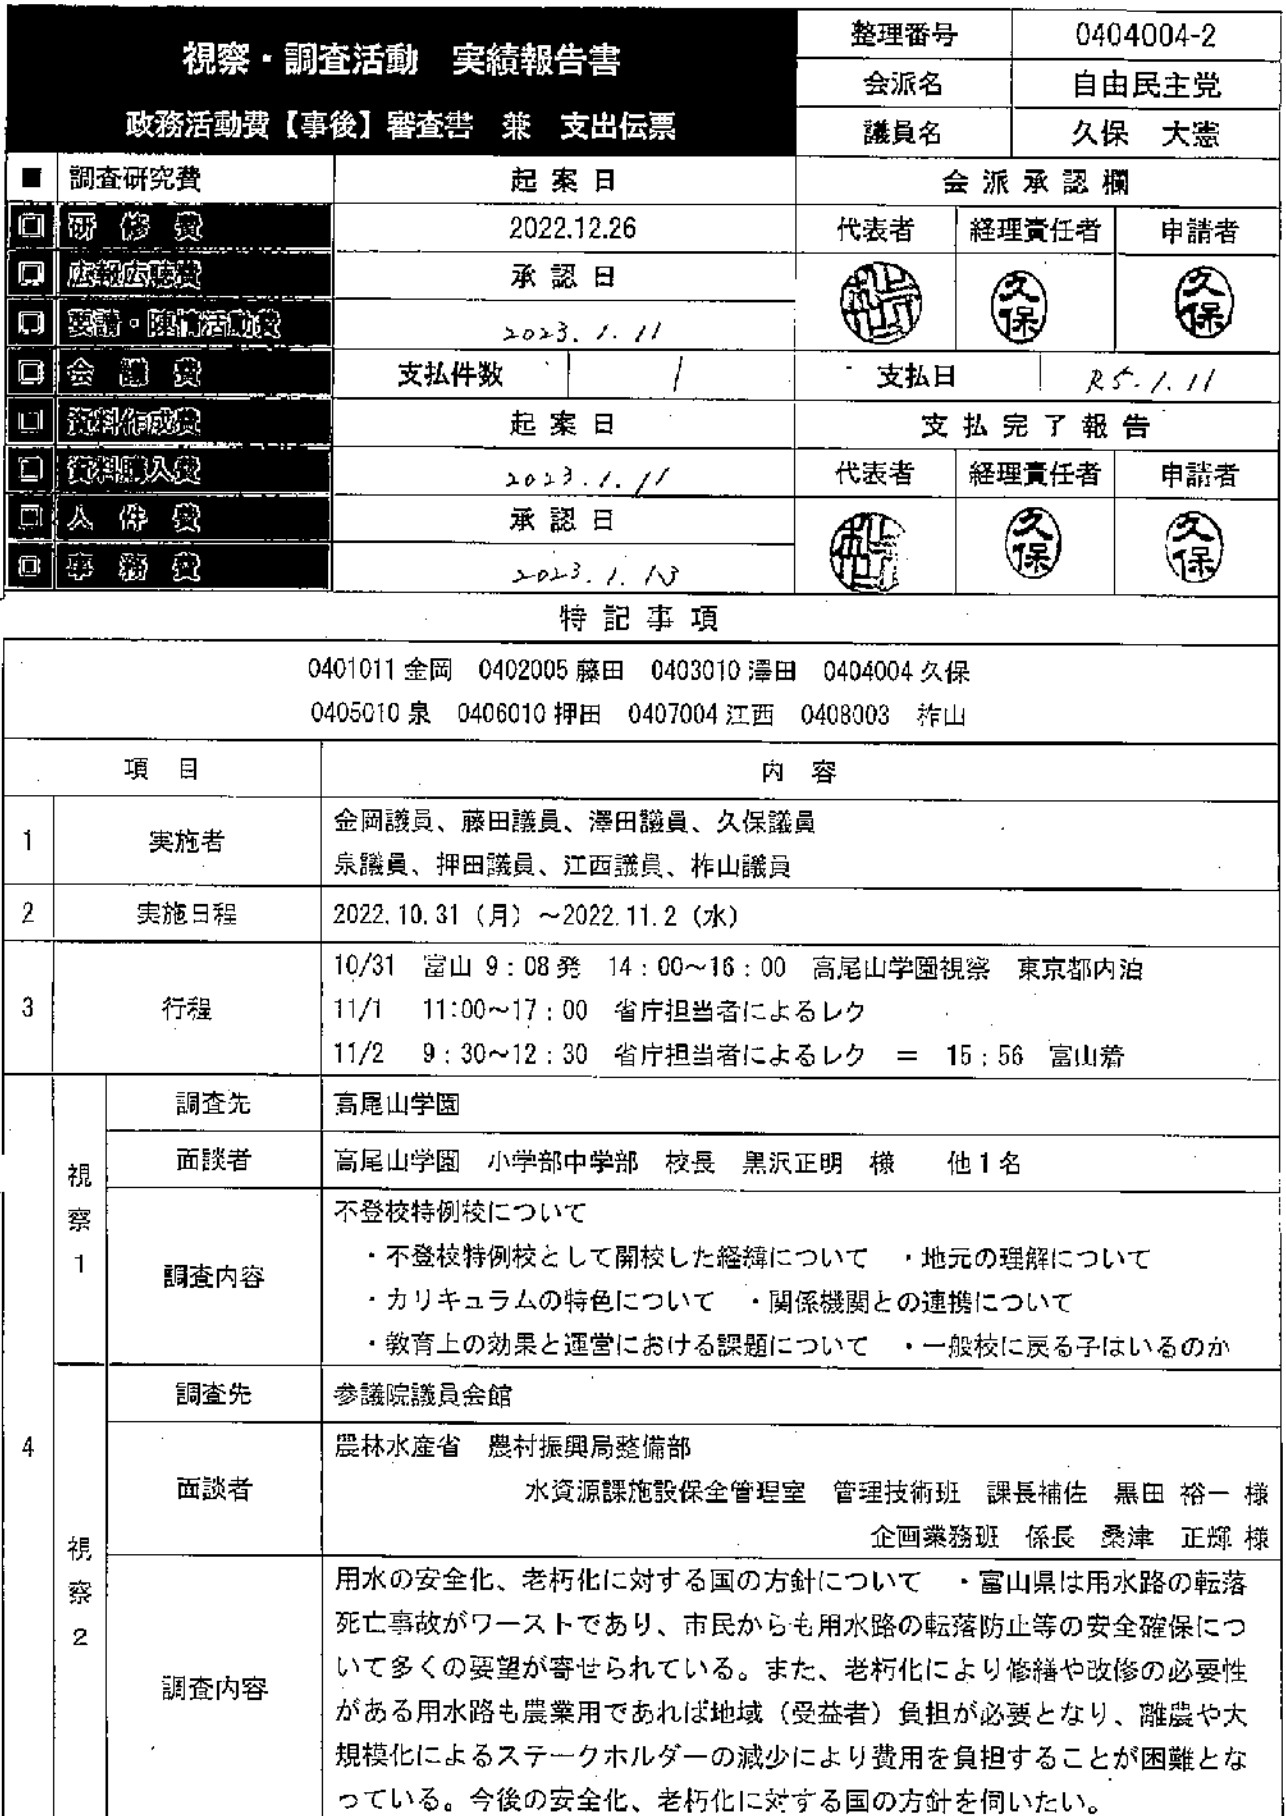 視察・調査活動 実績報告書
政務活動費【事後】審査書 兼 支出伝票
整理番号 0404004-2
会派名 自由民主党
議員名 久保 大憲
■ 調査研究費 起案日 会派承認欄
□ 研修費 2022.12.26 代表者 経理責任者 申請者
□ 広報広聴費 承認日 久保 久保
□ 要請・陳情活動費 2023.1.11
□ 会議費 支払件数 1 支払日 R5.1.11
□ 資料作成費 起案日 支払完了報告
□ 資料購入費 2023.1.11 代表者 経理責任者 申請者
□ 人件費 承認日 久保 久保
□ 事務費 2023.1.13
特記事項
0401011 金岡 0402005 藤田 0403010 澤田 0404004 久保
0405010 泉 0406010 押田 0407004 江西 0408003 柞山
項目 内容
1 実施者 金岡議員、藤田議員、澤田議員、久保議員
泉議員、押田議員、江西議員、柞山議員
2 実施日程 2022.10.31(月)~2022.11.2(水)
3 行程 10/31 富山 9:08発 14:00~16:00 高尾山学園視察 東京都内泊
11/1 11:00~17:00 省庁担当者によるレク
11/2 9:30~12:30 省庁担当者によるレク = 15:56 富山着
4
視察1
調査先 高尾山学園
面談者 高尾山学園 小学部中学部 校長 黒沢正明 様 他1名
調査内容 不登校特例校について
・不登校特例校として開校した経緯について ・地元の理解について
・カリキュラムの特色について ・関係機関との連携について
・教育上の効果と運営における課題について ・一般校に戻る子はいるのか
視察2
調査先 参議院議員会館
面談者 農林水産省 農村振興局整備部
水資源課施設保全管理室 管理技術班 課長補佐 黒田 裕一 様
企画業務班 係長 桑津 正輝 様
調査内容 用水の安全化、老朽化に対する国の方針について ・富山県は用水路の転落
死亡事故がワーストであり、市民からも用水路の転落防止等の安全確保につ
いて多くの要望が寄せられている。また、老朽化により修繕や改修の必要性
がある用水路も農業用であれば地域(受益者)負担が必要となり、離農や大
規模化によるステークホルダーの減少により費用を負担することが困難とな
っている。今後の安全化、老朽化に対する国の方針を伺いたい。